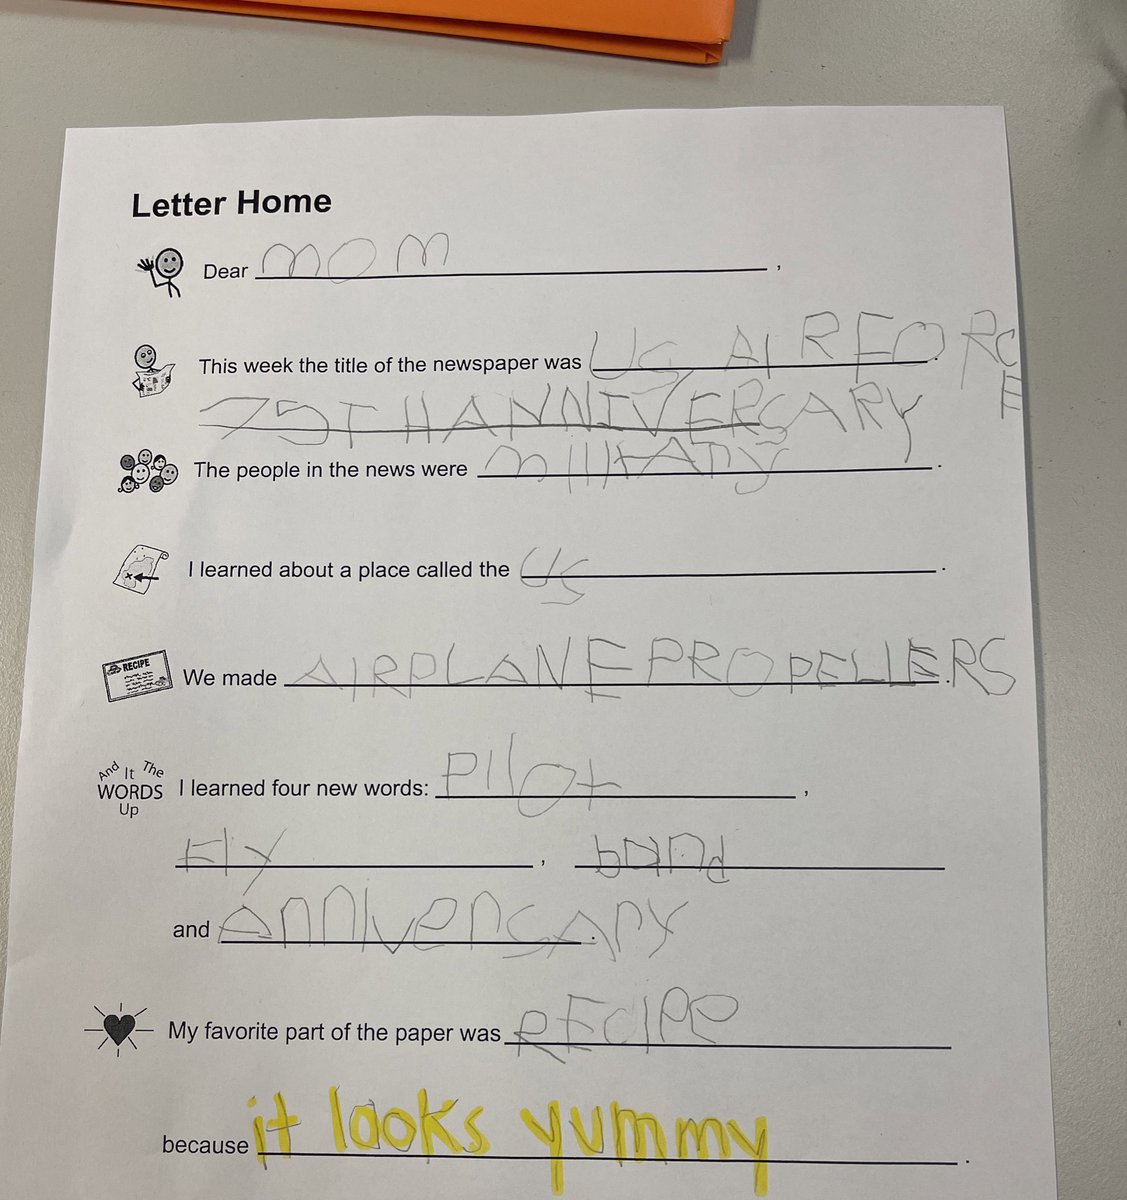 Letter Home
Dear MOM,
This week the title of the newspaper was US AIR FORCE.
75TH ANNIVERSARY
The people in the news were military.
I learned about a place called the US.
RECIPE
We made AIRPLANE PROPELLERS.
And It The WORDS Up
I learned four new words: Pilot,
Fly,
and Anniversary.
My favorite part of the paper was RECIPE
because it looks yummy.